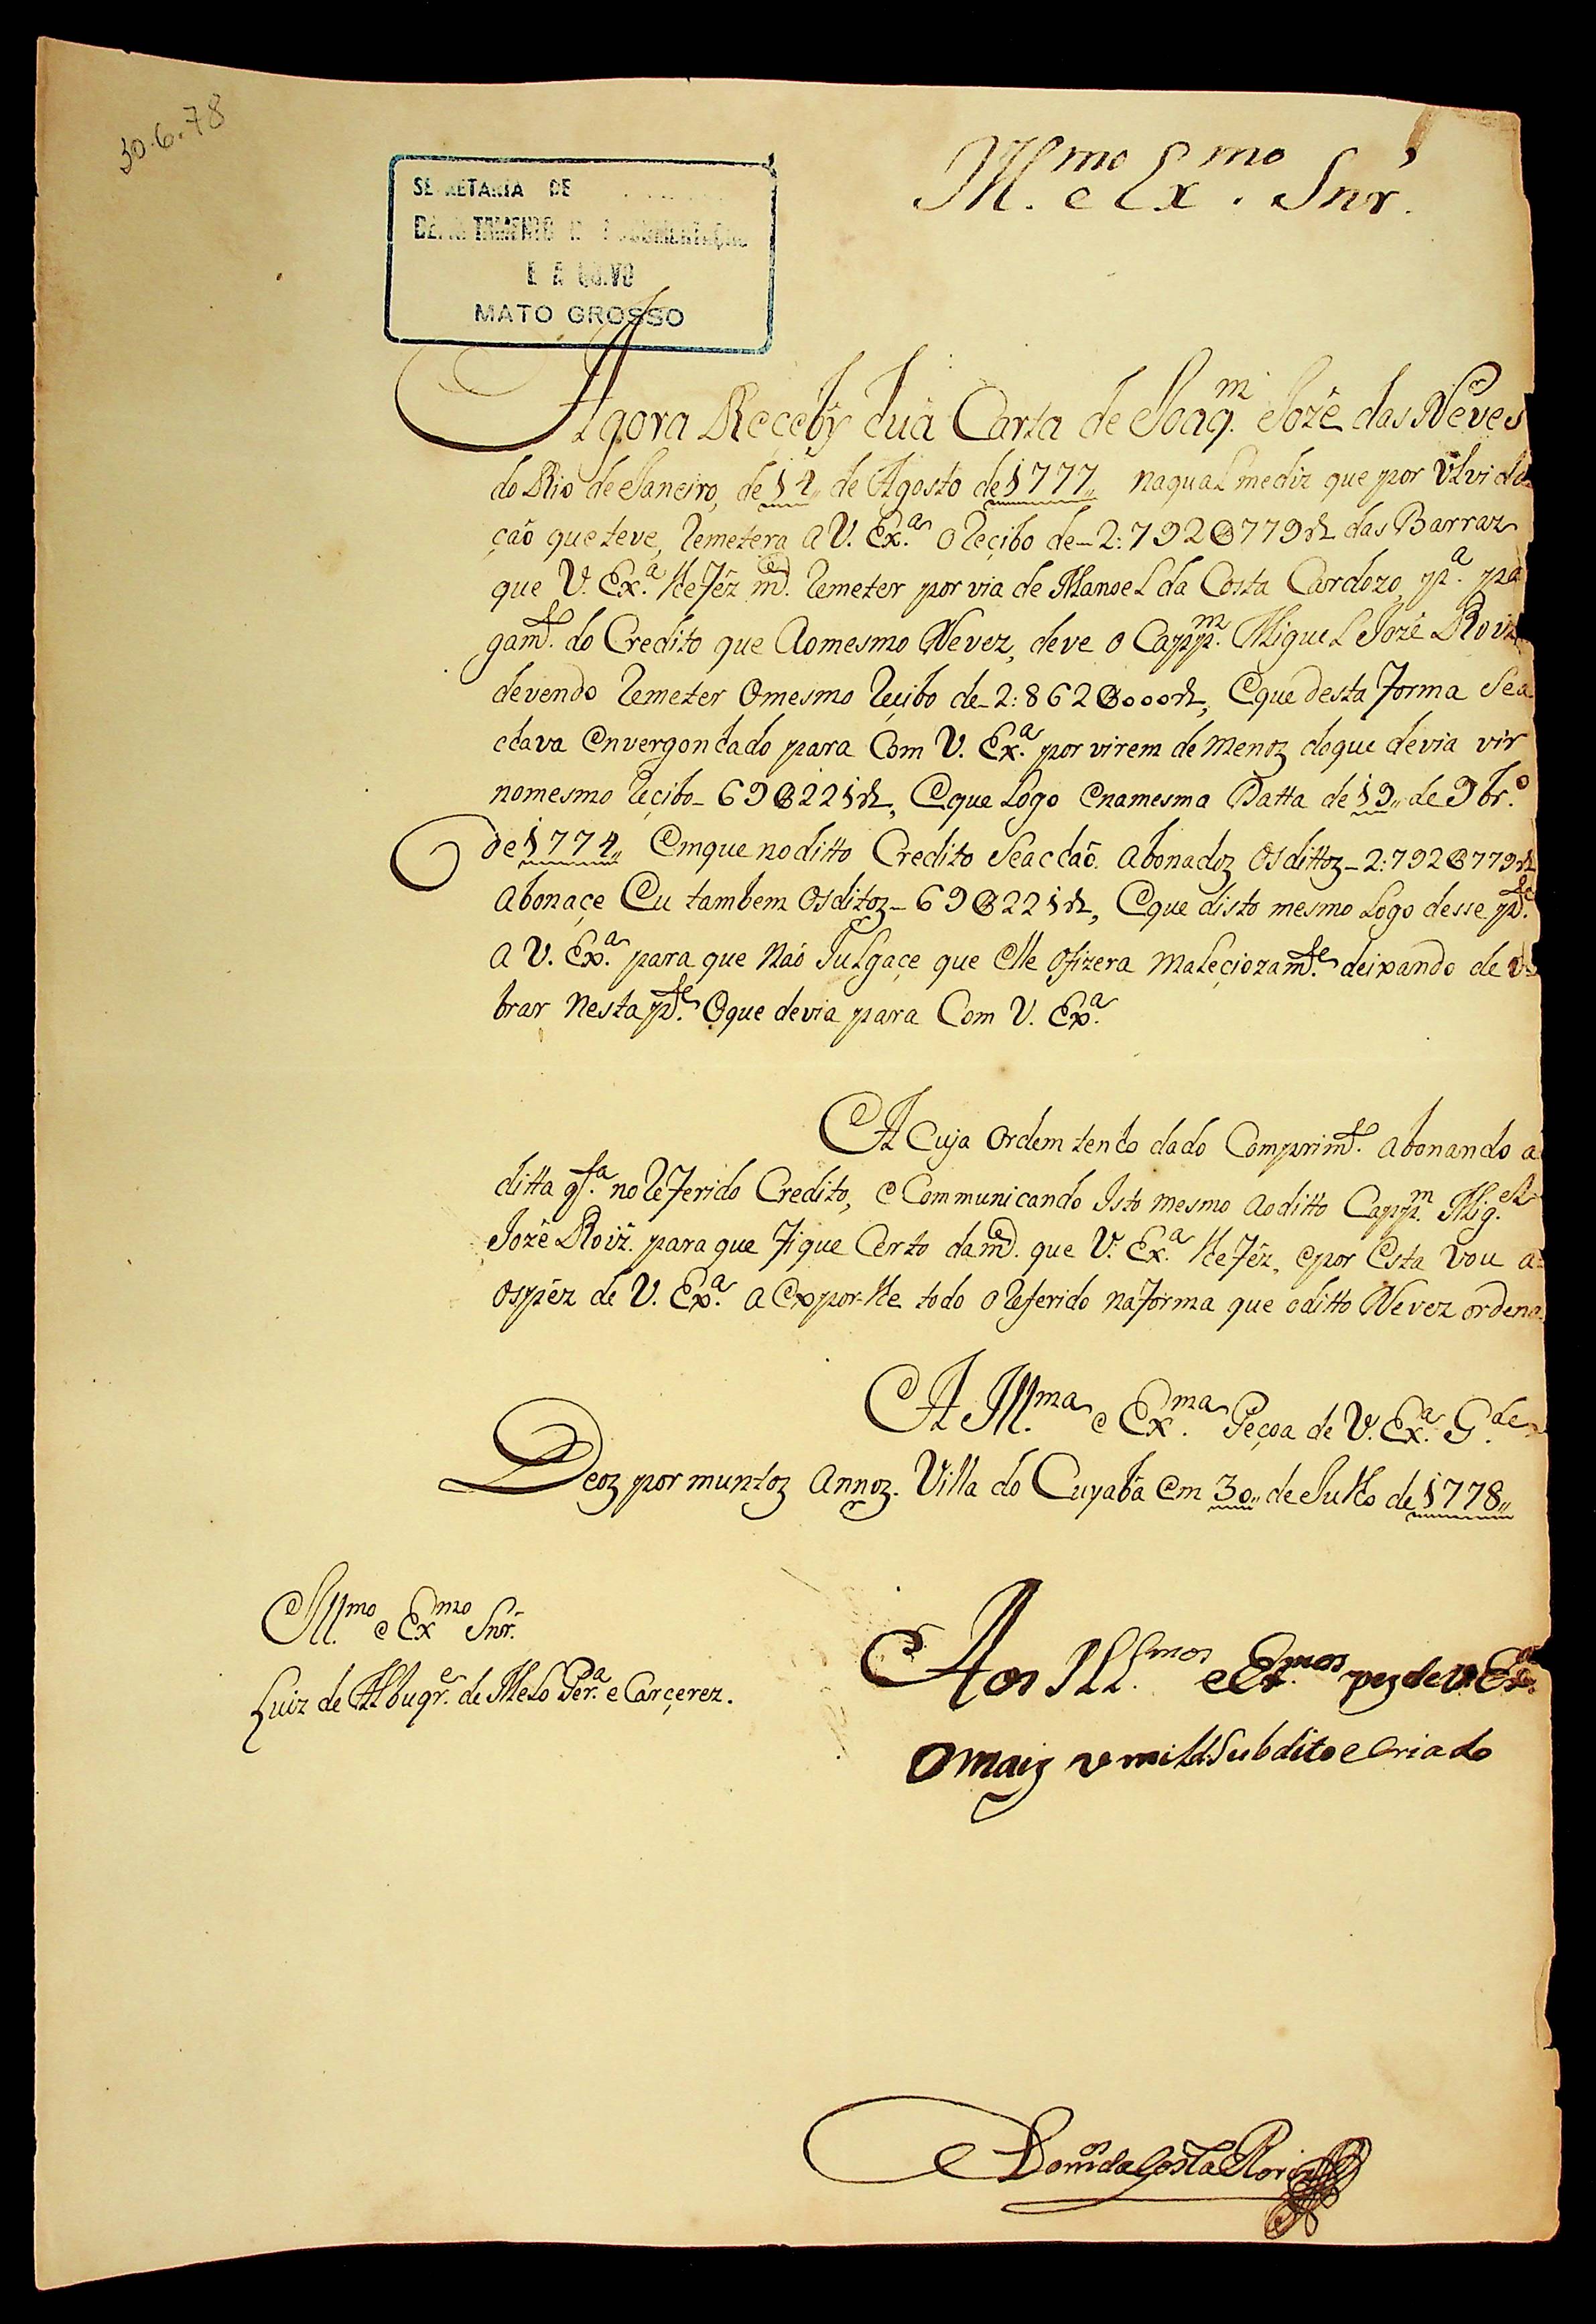 30.6.78
SECRETARIA DE
DEPARTAMENTO DE DOCUMENTAÇÃO
E ARQUIVO
MATO GROSSO
Ill.mo e Ex.mo Snr.
Agora Recebÿ huã Carta de Joaq.m Jozê das Neves
do Rio de Janeiro, de 14,, de Agosto de 1777,, naqual mediz que por Ulvida
ção que teve, Remetera a V. Ex.a o Reçibo de-2:792$779r. das Barraz
que V. Ex.a lhe fêz m.ce Remeter por via de Manoel da Costa Cardozo, p.a pa
gam.to do Credito que Aomesmo Nevez, deve o Capp.m Miguel Jozê Roiz
devendo Remeter omesmo Reçibo de-2:862$000r., eque desta forma Sea
chava envergonhado para Com V. Ex.a por virem de menoz doque devia vir
nomesmo Reçibo-69$221r., eque Logo enamesma Datta de 19,, de 9br.o
de 1774,, emque noditto Credito Seachaõ abonadoz osdittoz-2:792$779r.
abonaçe eu tambem osditoz-69$221r., eque disto mesmo Logo desse p.te
a V. Ex.a para que não Julgaçe que elle ofizera maleçiozam.te deixando de o
brar nesta p.te oque devia para Com V. Ex.a
A Cuja ordem tenho dado Comprim.to abonando a
ditta q.ta no Referido Credito, e Communicando Isto mesmo aoditto Capp.m Mig.el
Jozê Roiz. para que fique Certo dam.ce que V. Ex.a lhe fêz, epor esta vou a
ospéz de V. Ex.a a expor-lhe todo o Referido naforma que oditto Nevez ordena.
A Ill.ma e Ex.ma Peçoa de V. Ex.a G.de
Deoz por muntoz annoz. Villa do Cuyabâ em 30,, de Julho de 1778,,
Ill.mo e Ex.mo Snr.
Luiz de Albuqr.e de Melo Per.a e Carçerez.
Aos Ill.mos e Ex.mos pez de V. Ex.a
O maiz umild. Subdito e Criado
Dom.os da Costa